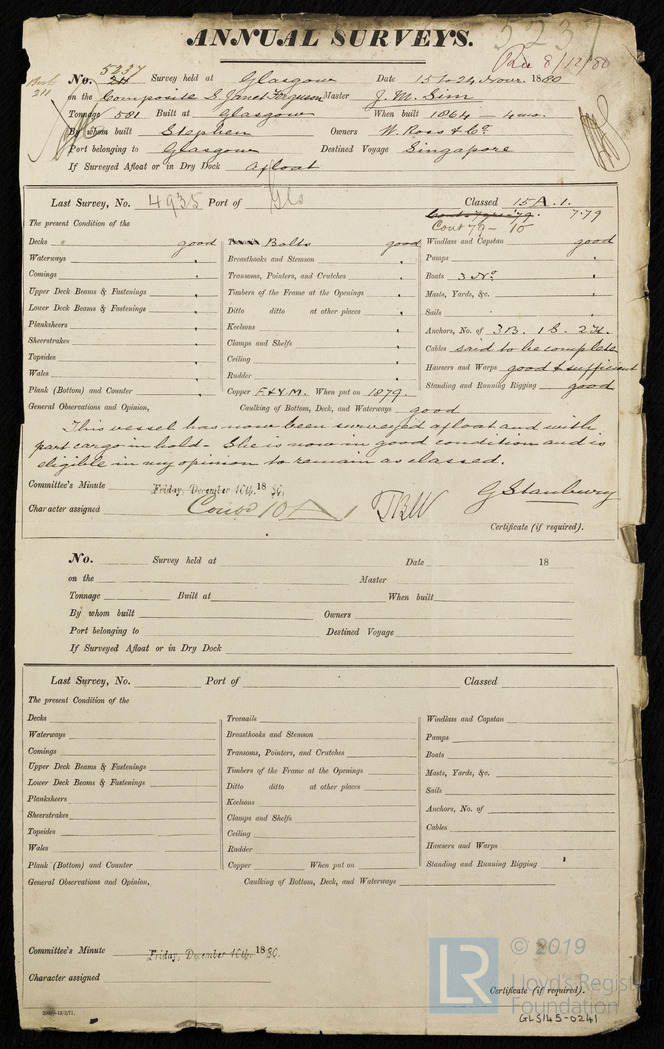 ANNUAL SURVEYS.
5237
Rec 8/12/80
5237
No. 211 Survey held at Glasgow Date 15 to 24 Novr. 1880
Book 211
on the Composite S. Janet Ferguson Master J. M. Sim
Tonnage 581 Built at Glasgow When built 1864 - 4 mo.
By whom built Stephen Owners W. Ross & Co.
Port belonging to Glasgow Destined Voyage Singapore
If Surveyed Afloat or in Dry Dock Afloat
Last Survey, No. 4935 Port of Gls Classed 15 A. 1.
7.79
Cont 79 - 10
The present Condition of the
Decks good
Waterways "
Comings "
Upper Deck Beams & Fastenings "
Lower Deck Beams & Fastenings "
Planksheers "
Sheerstrakes "
Topsides "
Wales "
Plank (Bottom) and Counter "
Bolts good
Breasthooks and Stemson "
Transoms, Pointers, and Crutches "
Timbers of the Frame at the Openings "
Ditto ditto at other places "
Keelsons "
Clamps and Shelfs "
Ceiling "
Rudder "
Copper F & Y. M. When put on 1879.
Windlass and Capstan good
Pumps "
Boats 3 No. "
Masts, Yards, &c. "
Sails "
Anchors, No. of 3 B. 1 S. 2 K.
Cables said to be complete
Hawsers and Warps good & sufficient
Standing and Running Rigging good
General Observations and Opinion, Caulking of Bottom, Deck, and Waterways good
This vessel has now been surveyed afloat and with
part cargo in hold. She is now in good condition and is
eligible in my opinion to remain as classed.
Committee's Minute Friday, December 10th. 1880.
G Stanbury
Character assigned Contd 10 A 1
Certificate (if required).
No. Survey held at Date 18
on the Master
Tonnage Built at When built
By whom built Owners
Port belonging to Destined Voyage
If Surveyed Afloat or in Dry Dock
Last Survey, No. Port of Classed
The present Condition of the
Decks
Waterways
Comings
Upper Deck Beams & Fastenings
Lower Deck Beams & Fastenings
Planksheers
Sheerstrakes
Topsides
Wales
Plank (Bottom) and Counter
Treenails
Breasthooks and Stemson
Transoms, Pointers, and Crutches
Timbers of the Frame at the Openings
Ditto ditto at other places
Keelsons
Clamps and Shelfs
Ceiling
Rudder
Copper When put on
Windlass and Capstan
Pumps
Boats
Masts, Yards, &c.
Sails
Anchors, No. of
Cables
Hawsers and Warps
Standing and Running Rigging
General Observations and Opinion, Caulking of Bottom, Deck, and Waterways
Committee's Minute Friday, December 10th. 1880.
Character assigned
Certificate (if required).
LR
© 2019
Lloyd's Register
Foundation
GLS145-0241